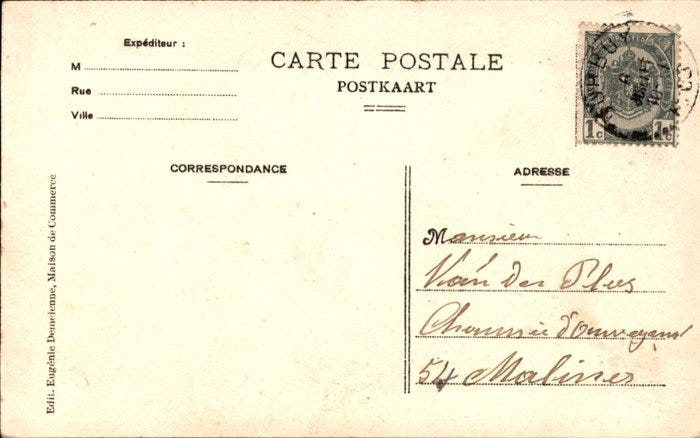 Expéditeur :
M
Rue
Ville
CARTE POSTALE
POSTKAART
1c 1c
CORRESPONDANCE
ADRESSE
Monsieur
Van der
Chaussée
54 Malines
Edit. Eugénie Demeienne, Maison de Commerce